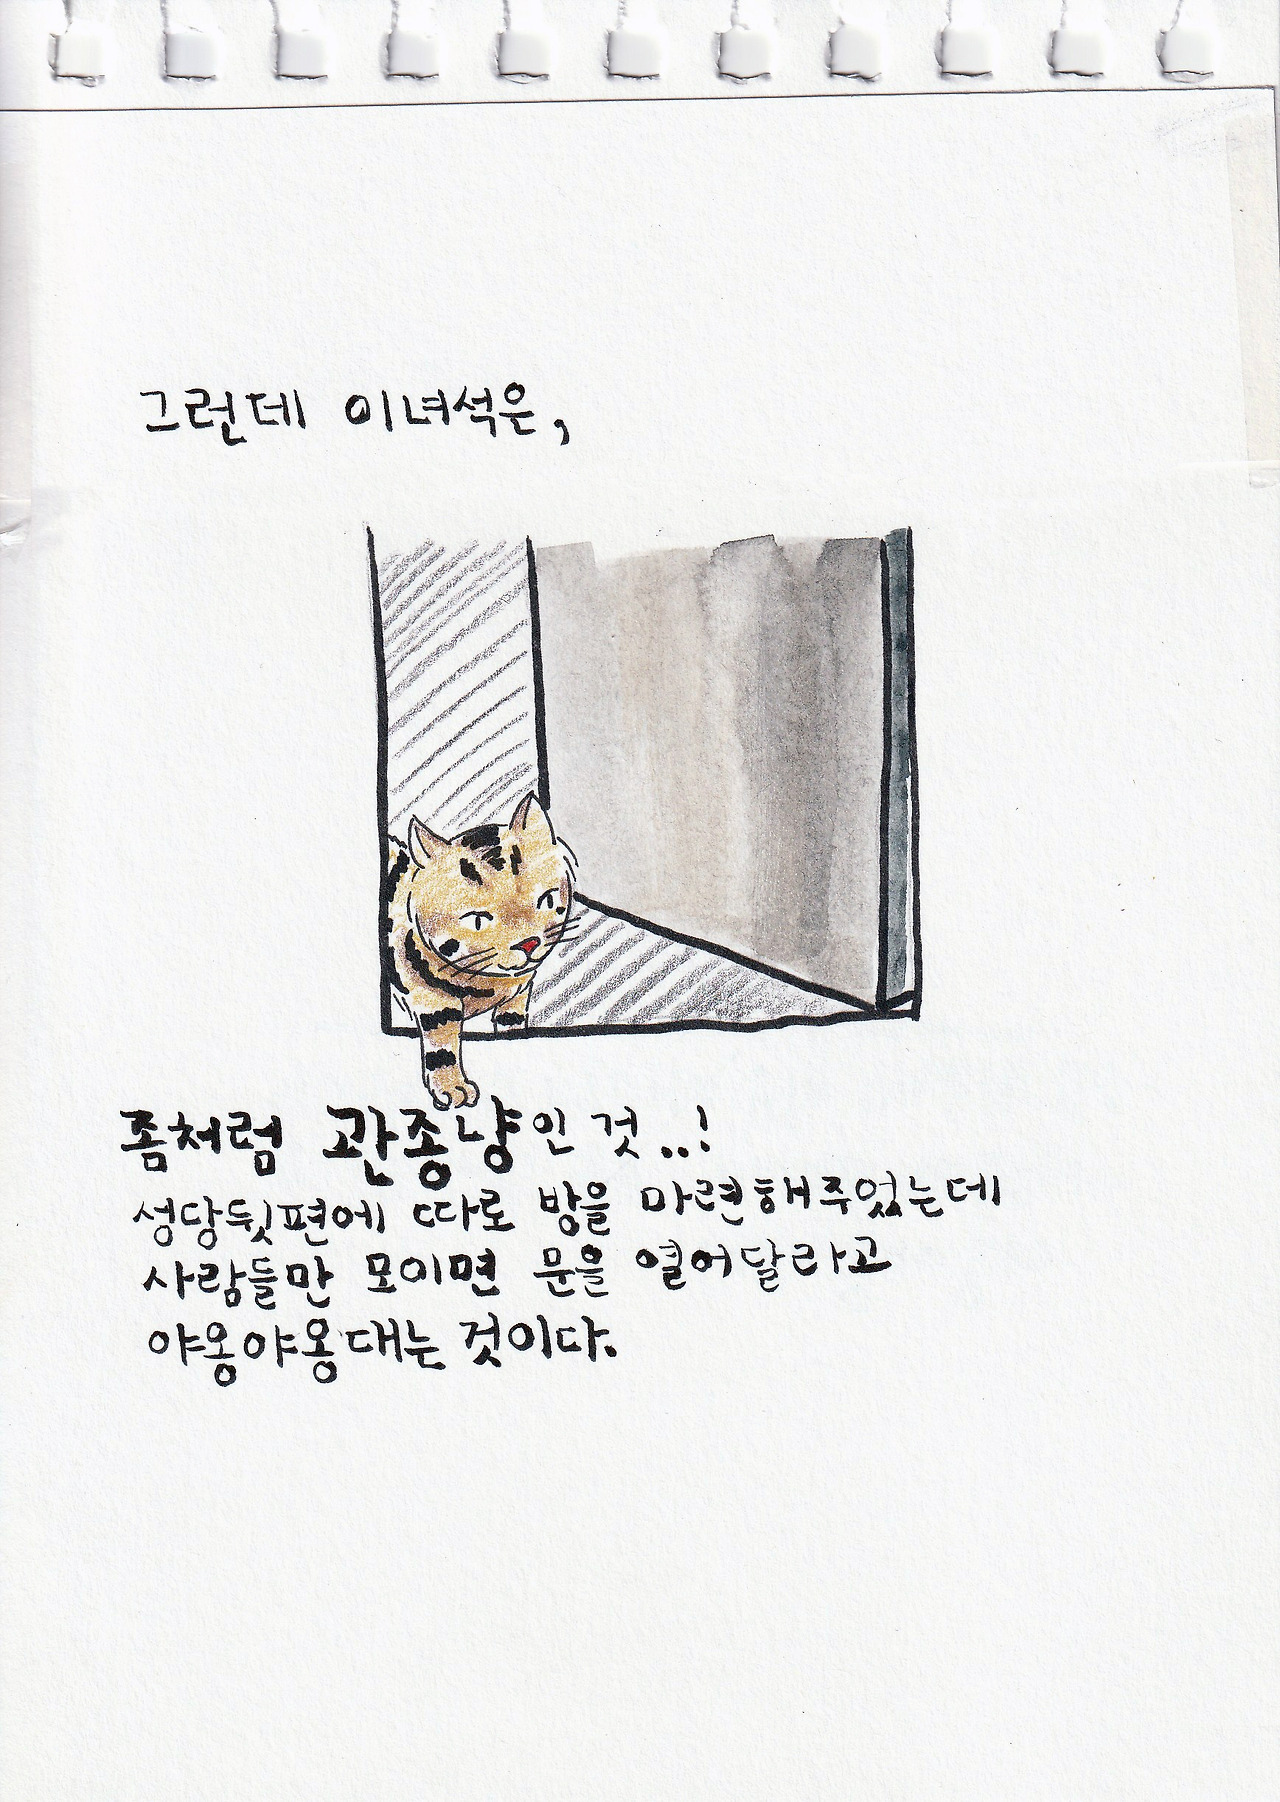 그런데 이녀석은,
좀처럼 관종냥인 것..!
성당뒷편에 따로 방을 마련해주었는데
사람들만 모이면 문을 열어달라고
야옹야옹대는 것이다.